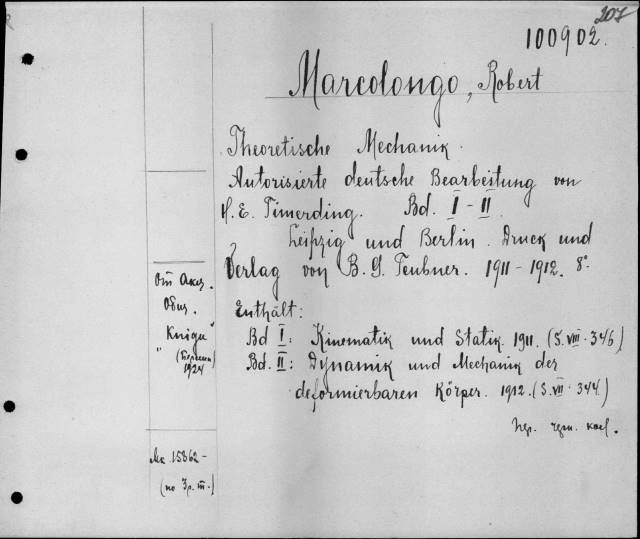 207
100902.
Marcolongo, Robert
Theoretische Mechanik.
Autorisierte deutsche Bearbeitung von
H. E. Timerding. Bd. I - II.
Leipzig und Berlin. Druck und
Verlag von B. G. Teubner. 1911 - 1912. 8°.
Enthält:
Bd I: Kinematik und Statik. 1911. (S. VIII. 346)
Bd. II: Dynamik und Mechanik der
deformierbaren Körper. 1912. (S. VII. 344.)
От Акц.
Общ.
"Книга"
(Берлин)
1924
15862 -